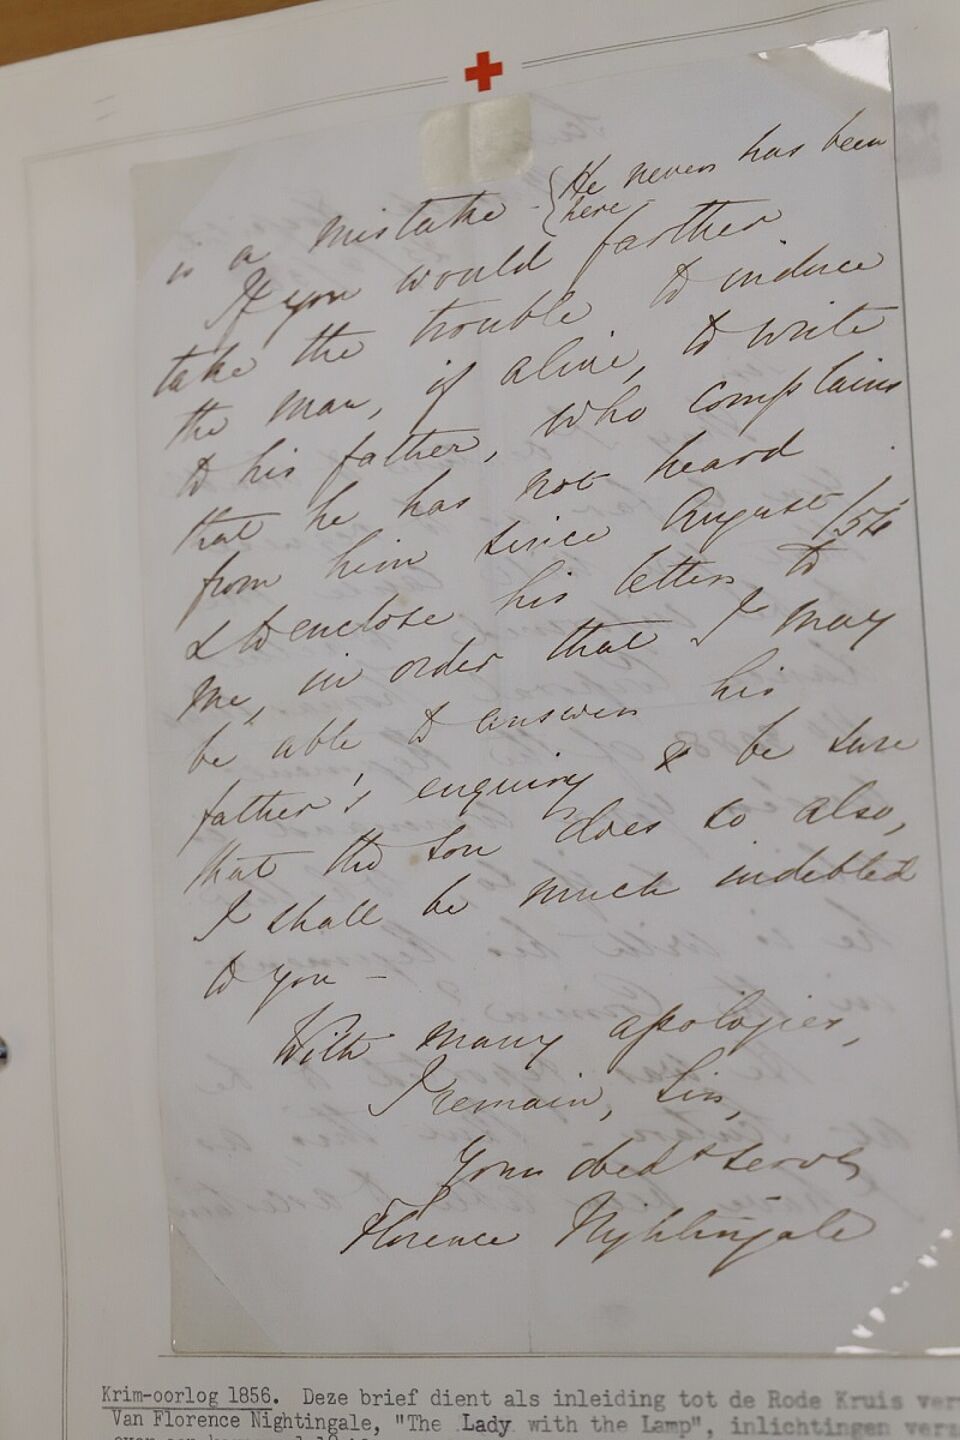 is a mistake - {He never has been
here -
If you would farther
take the trouble to induce
the man, if alive, to write
to his father, who complains
that he has not heard
from him since August /54
& to enclose his letter to
me, in order that I may
be able to answer his
father's enquiry & be sure
that the son does so also,
I shall be much indebted
to you -
With many apologies,
I remain, Sir,
Your obedt servt
Florence Nightingale
Krim-oorlog 1856. Deze brief dient als inleiding tot de Rode Kruis
Van Florence Nightingale, "The Lady with the Lamp", inlichtingen